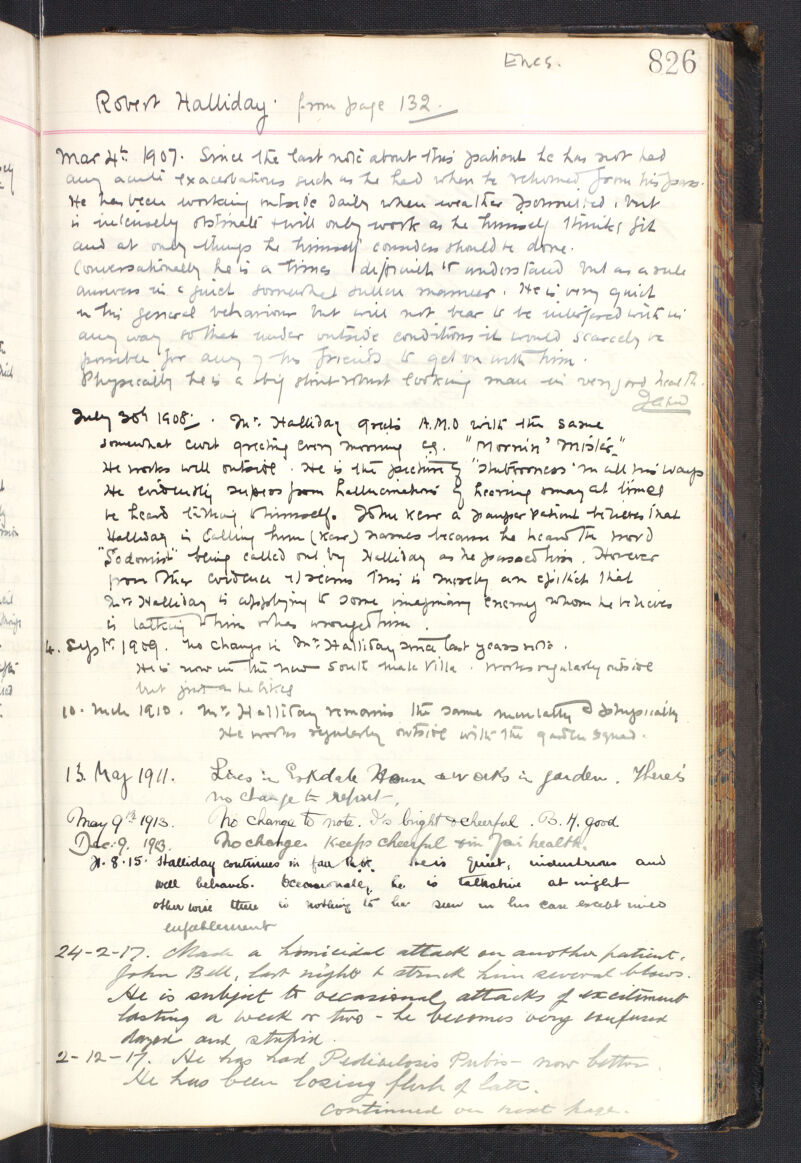 Encs.
826
Robert Halliday. from page 132.
Mar 4th 1907. Since the last note about this patient he has not had
any acute exacerbations such as he had when he returned from his pass.
He has been working outside daily when weather permitted, but
is intensely obstinate & will only work as he himself thinks fit
and at only things he himself considers should be done.
Conversationally he is at times difficult to understand but as a rule
answers in a quiet somewhat sullen manner. He is very quiet
in his general behaviour but will not bear to be interfered with in
any way so that under outside conditions it would scarcely be
possible for any of his friends to get on with him.
Physically he is a big stout robust looking man in very good health.
July 30th 1908. Mr. Halliday greets A.M.O with the same
somewhat curt greeting every morning e.g. "Mornin' Mister"
He works well outside. He is the picture of "stubbornness" in all his ways
He evidently suffers from hallucinations of hearing & may at times
be heard talking to himself. John Kerr a pauper patient believes that
Halliday is calling him (Kerr) names because he heard the word
"Sodomist" being called out by Halliday as he passed him. However
from other evidence it seems this is merely an epithet that
Mr. Halliday is applying to some imaginary enemy whom he believes
is talking to him & has wronged him.
4. Sept. 1909. No change in Mr. Halliday since last years note.
He is now in the new South Male Villa. Works regularly outside
but just as he likes
10. Mch 1910. Mr. Halliday remains the same mentally & physically
He works regularly outside with the garden squad.
13. May 1911. Lives in Eskdale House & works in garden. There is
no change to report.
May 9th 1913. No change to note. Is bright & cheerful. B. H. good
Dec. 9. 1913. No change. Keeps cheerful & in fair health.
8.15. Halliday continues in fair He is quiet, industrious and
well behaved. Occasionally, he is talkative at night
otherwise there is nothing to be seen in his case except mild
enfeeblement
24-2-17. Made a homicidal attack on another patient,
John Bell, last night & struck him several blows.
He is subject to occasional attacks of excitement
lasting a week or two - he becomes very confused
dazed and stupid.
2-12-17. He has had Pediculosis Pubis - now better.
He has been losing flesh of late.
continued on next page.